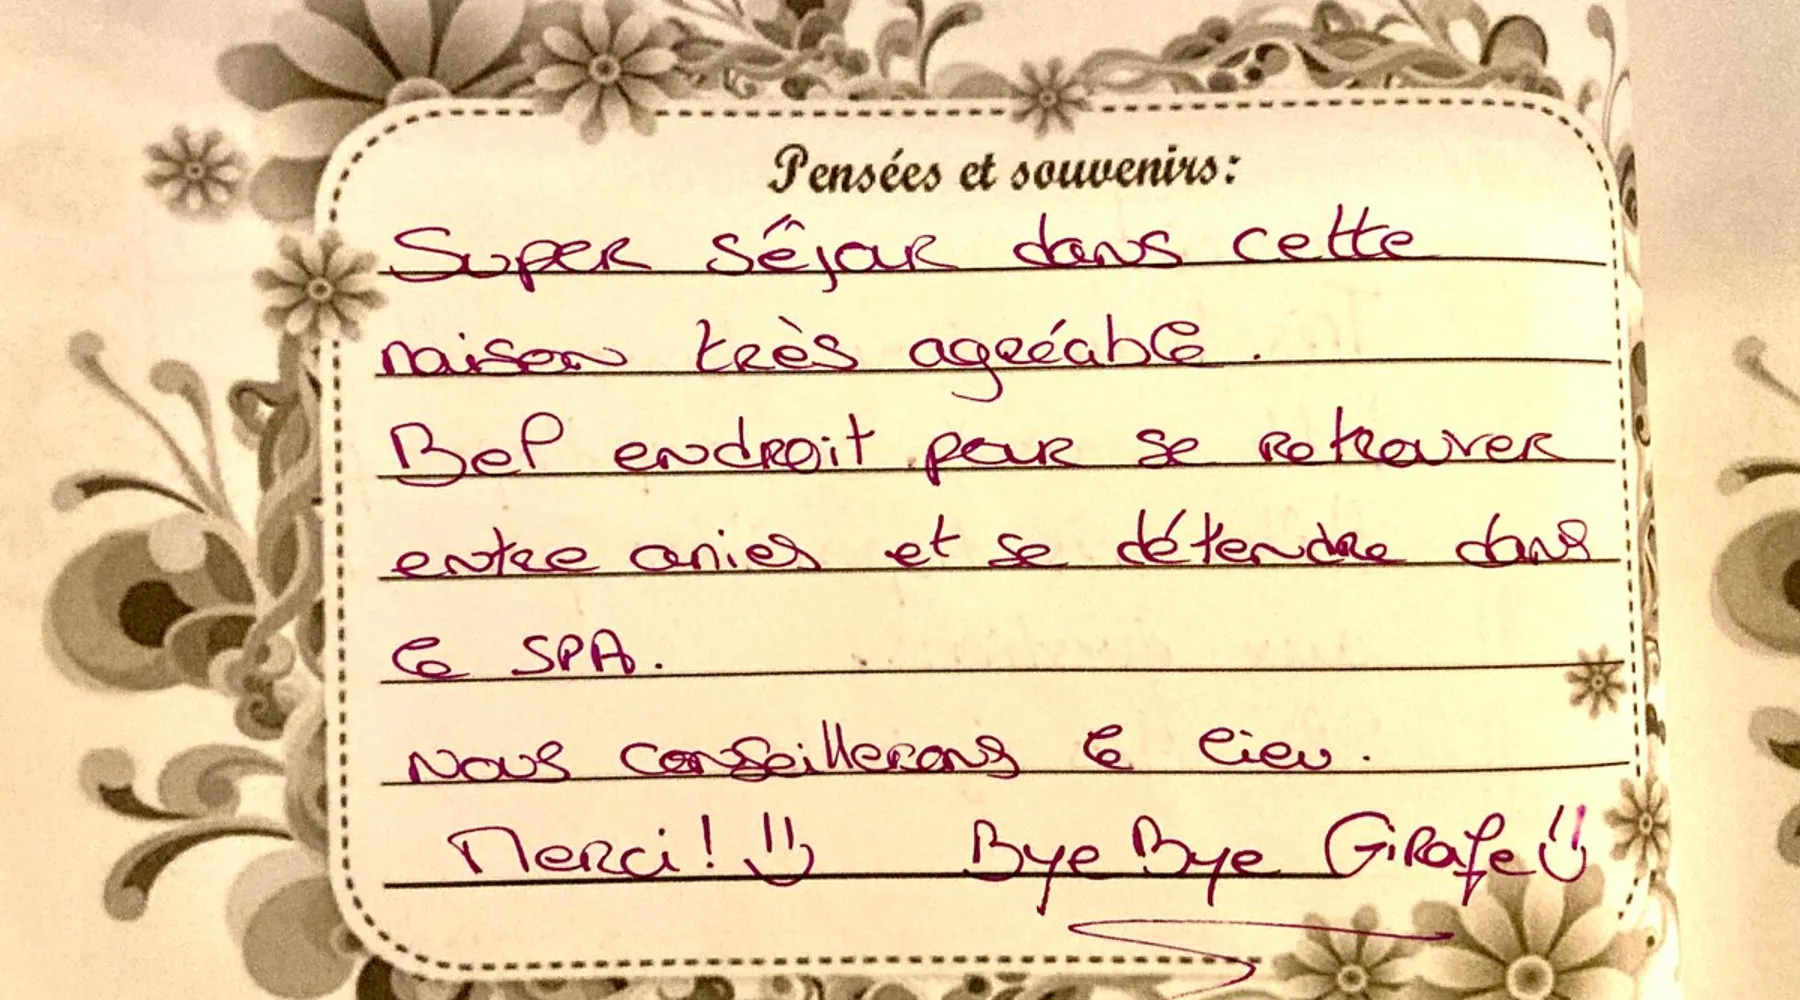 Pensées et souvenirs:
Super séjour dans cette
maison très agréable.
Bel endroit pour se retrouver
entre amies et se détendre dans
le SPA.
Nous conseillerons le lieu.
Merci! Bye Bye Girafe